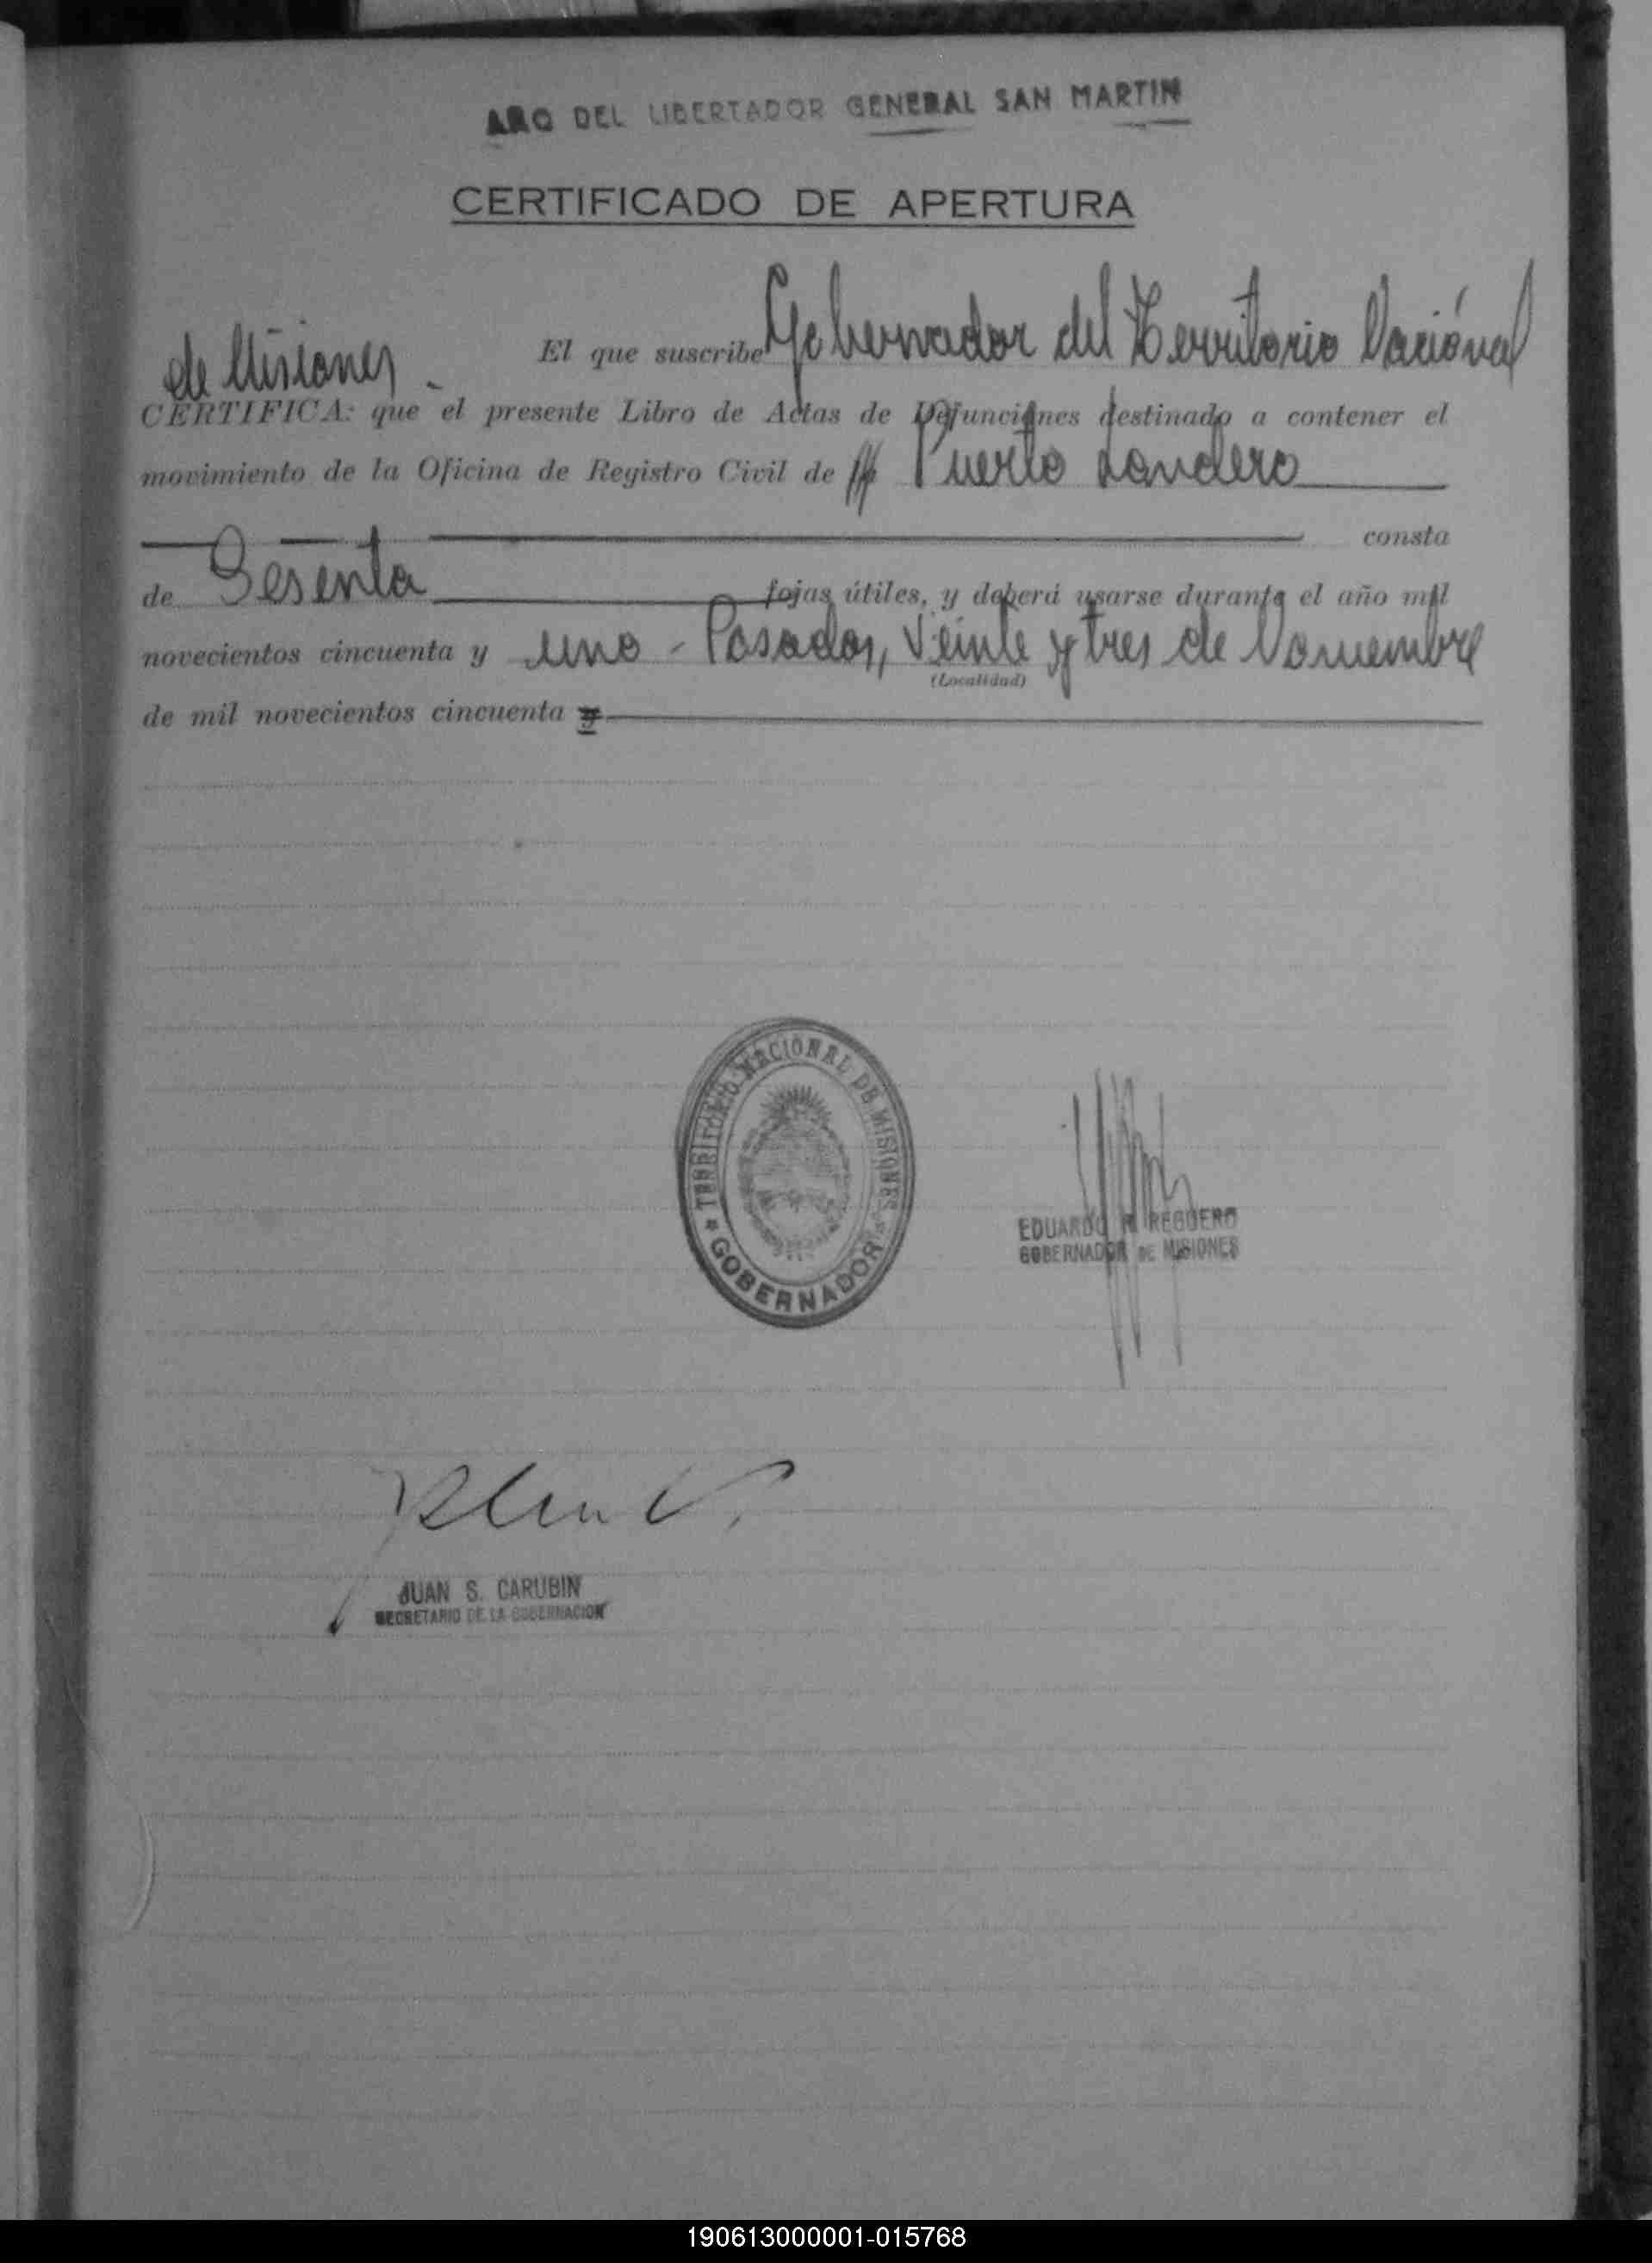 AÑO DEL LIBERTADOR GENERAL SAN MARTIN
CERTIFICADO DE APERTURA
El que suscribe Gobernador del Territorio Naciónal
de Misiones.
CERTIFICA: que el presente Libro de Actas de Defunciones destinado a contener el
movimiento de la Oficina de Registro Civil de Puerto Londero
consta
de Sesenta fojas útiles, y deberá usarse durante el año mil
novecientos cincuenta y uno - Posadas, Veinte y tres de Noviembre
(Localidad)
de mil novecientos cincuenta y
TERRITORIO NACIONAL DE MISIONES
* GOBERNADOR *
EDUARDO REGUERO
GOBERNADOR DE MISIONES
JUAN S. CARUBIN
SECRETARIO DE LA GOBERNACION
190613000001-015768